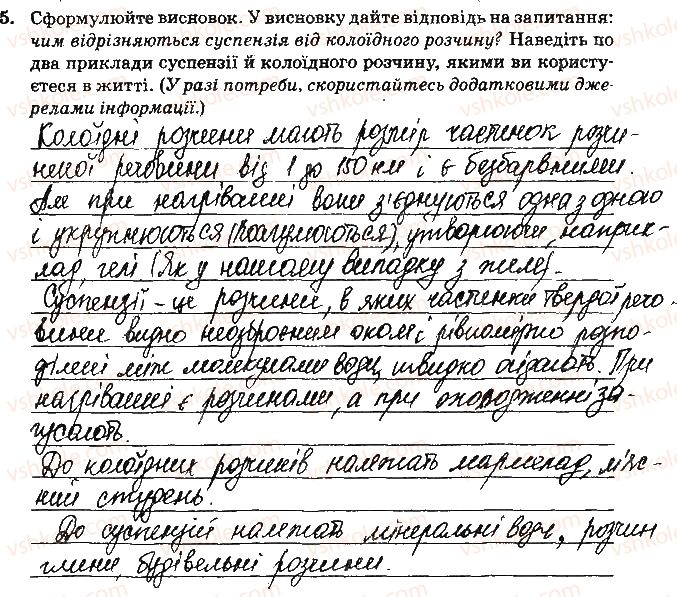 5. Сформулюйте висновок. У висновку дайте відповідь на запитання:
чим відрізняються суспензія від колоїдного розчину? Наведіть по
два приклади суспензії й колоїдного розчину, якими ви користу-
єтеся в житті. (У разі потреби, скористайтесь додатковими дже-
релами інформації.)
Колоїдні розчини мають розмір частинок розчи-
неної речовини від 1 до 150 нм і є безбарвними.
Але при нагріванні вони з'єднуються одна з одною
і укрупнюються (коагулюються), утворюючи, наприк-
лад, гелі (Як у нашому випадку з желе).
Суспензії - це розчини, в яких частинки твердої речо-
вини видно неозброєним оком і рівномірно розпо-
ділені між молекулами води, швидко осідають. При
нагріванні є розчинами, а при охолодженні за-
гусають.
До колоїдних розчинів належать мармелад, м'яс-
ний студень.
До суспензій належать мінеральні води, розчин
глини, будівельні розчини.